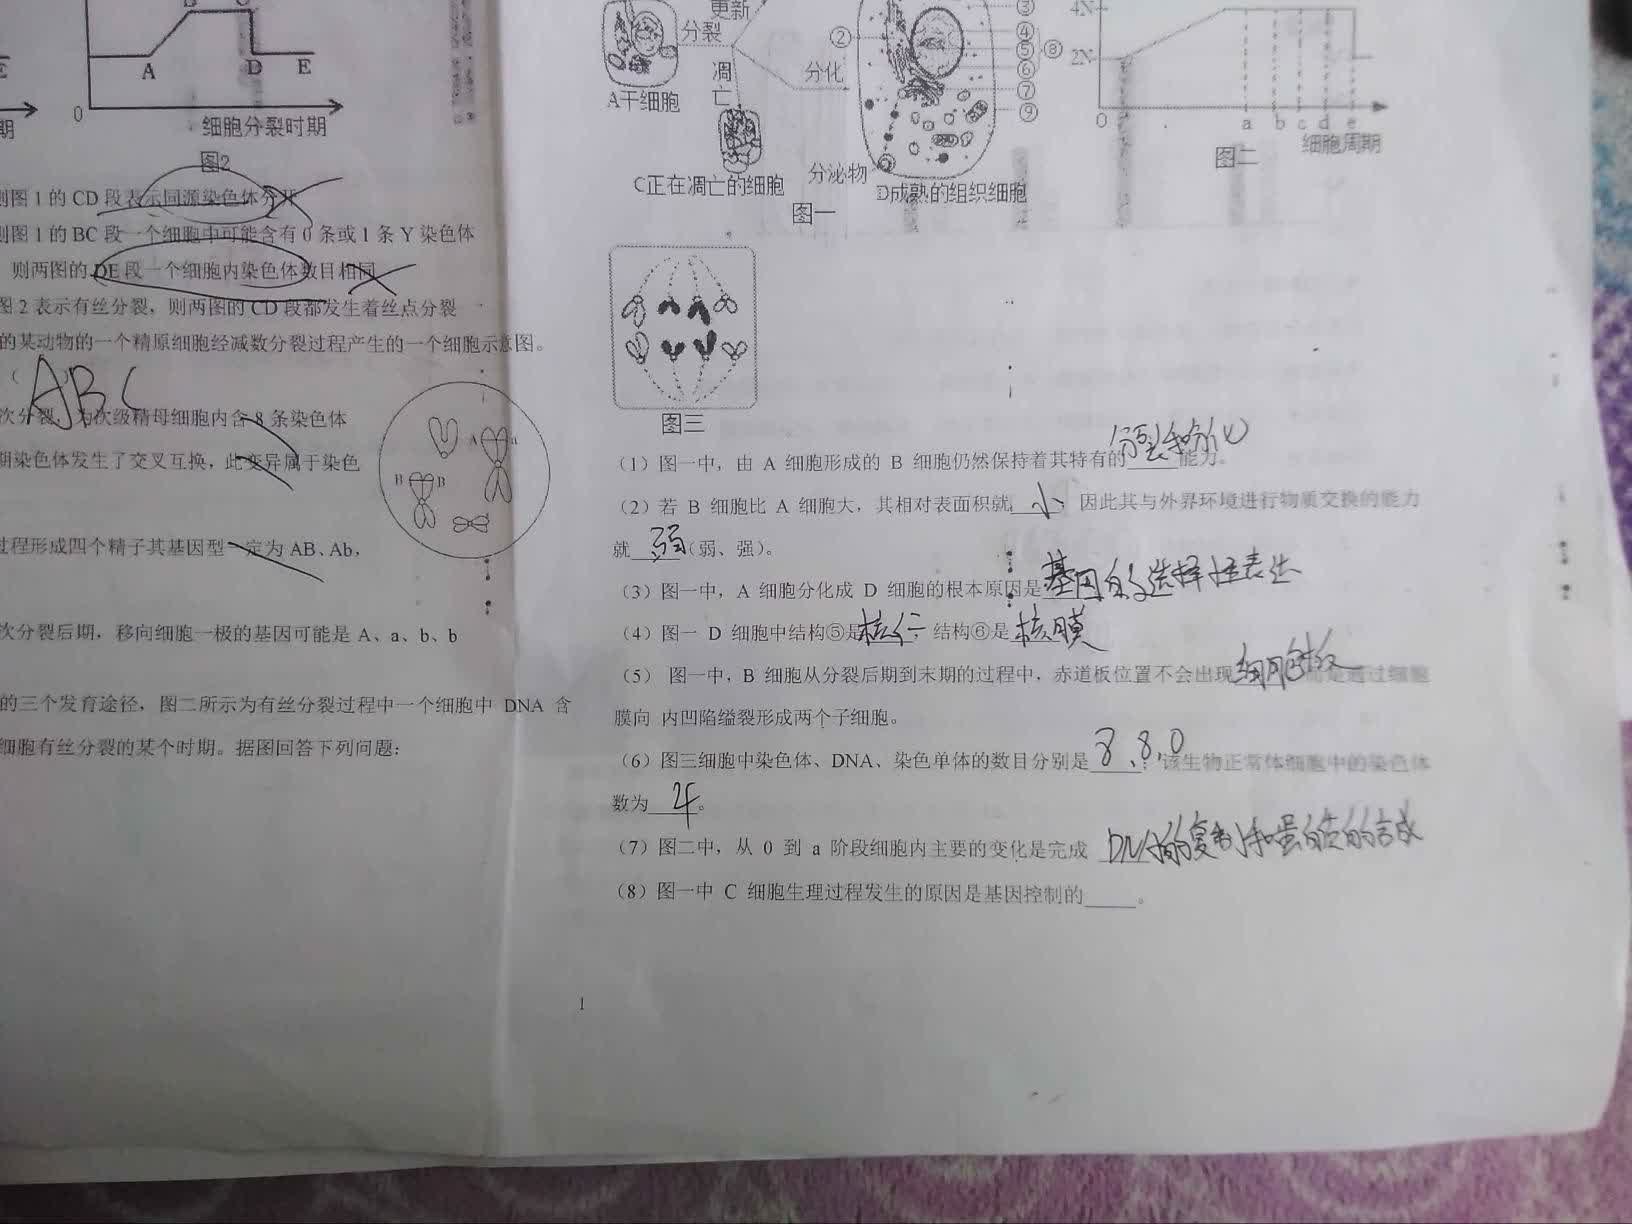 A
D
E
0
细胞分裂时期
图2
则图 1 的 CD 段表示同源染色体分开
则图 1 的 BC 段一个细胞中可能含有 0 条或 1 条 Y 染色体
则两图的 DE 段一个细胞内染色体数目相同
图 2 表示有丝分裂，则两图的 CD 段都发生着丝点分裂
的某动物的一个精原细胞经减数分裂过程产生的一个细胞示意图。
（ ABC
次分裂，为次级精母细胞内含 8 条染色体
期染色体发生了交叉互换，此变异属于染色
A a
B B
过程形成四个精子其基因型一定为 AB、Ab，
次分裂后期，移向细胞一极的基因可能是 A、a、b、b
的三个发育途径，图二所示为有丝分裂过程中一个细胞中 DNA 含
细胞有丝分裂的某个时期。据图回答下列问题：
更新
分裂
凋亡
分化
A干细胞
C正在凋亡的细胞
分泌物
D成熟的组织细胞
图一
② ③ ④ ⑤ ⑥ ⑦ ⑧ ⑨
4N
2N
0 a b c d e
细胞周期
图二
图三
（1）图一中，由 A 细胞形成的 B 细胞仍然保持着其特有的分裂和分化能力。
（2）若 B 细胞比 A 细胞大，其相对表面积就小，因此其与外界环境进行物质交换的能力
就弱（弱、强）。
（3）图一中，A 细胞分化成 D 细胞的根本原因是基因的选择性表达
（4）图一 D 细胞中结构⑤是核仁 结构⑥是核膜
（5） 图一中，B 细胞从分裂后期到末期的过程中，赤道板位置不会出现细胞板 而是通过细胞
膜向 内凹陷缢裂形成两个子细胞。
（6）图三细胞中染色体、DNA、染色单体的数目分别是8、8、0 该生物正常体细胞中的染色体
数为4。
（7）图二中，从 0 到 a 阶段细胞内主要的变化是完成 DNA的复制和蛋白质的合成
（8）图一中 C 细胞生理过程发生的原因是基因控制的_____。
1